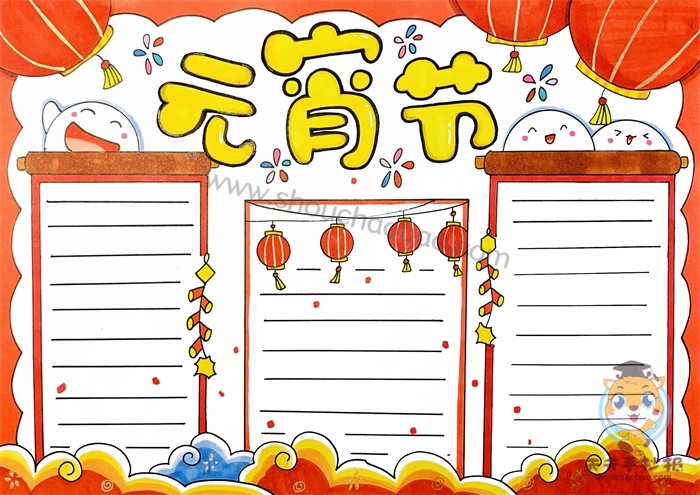 元宵节
www.shouchaobao.com
天手手抄报
shouchaobao.com